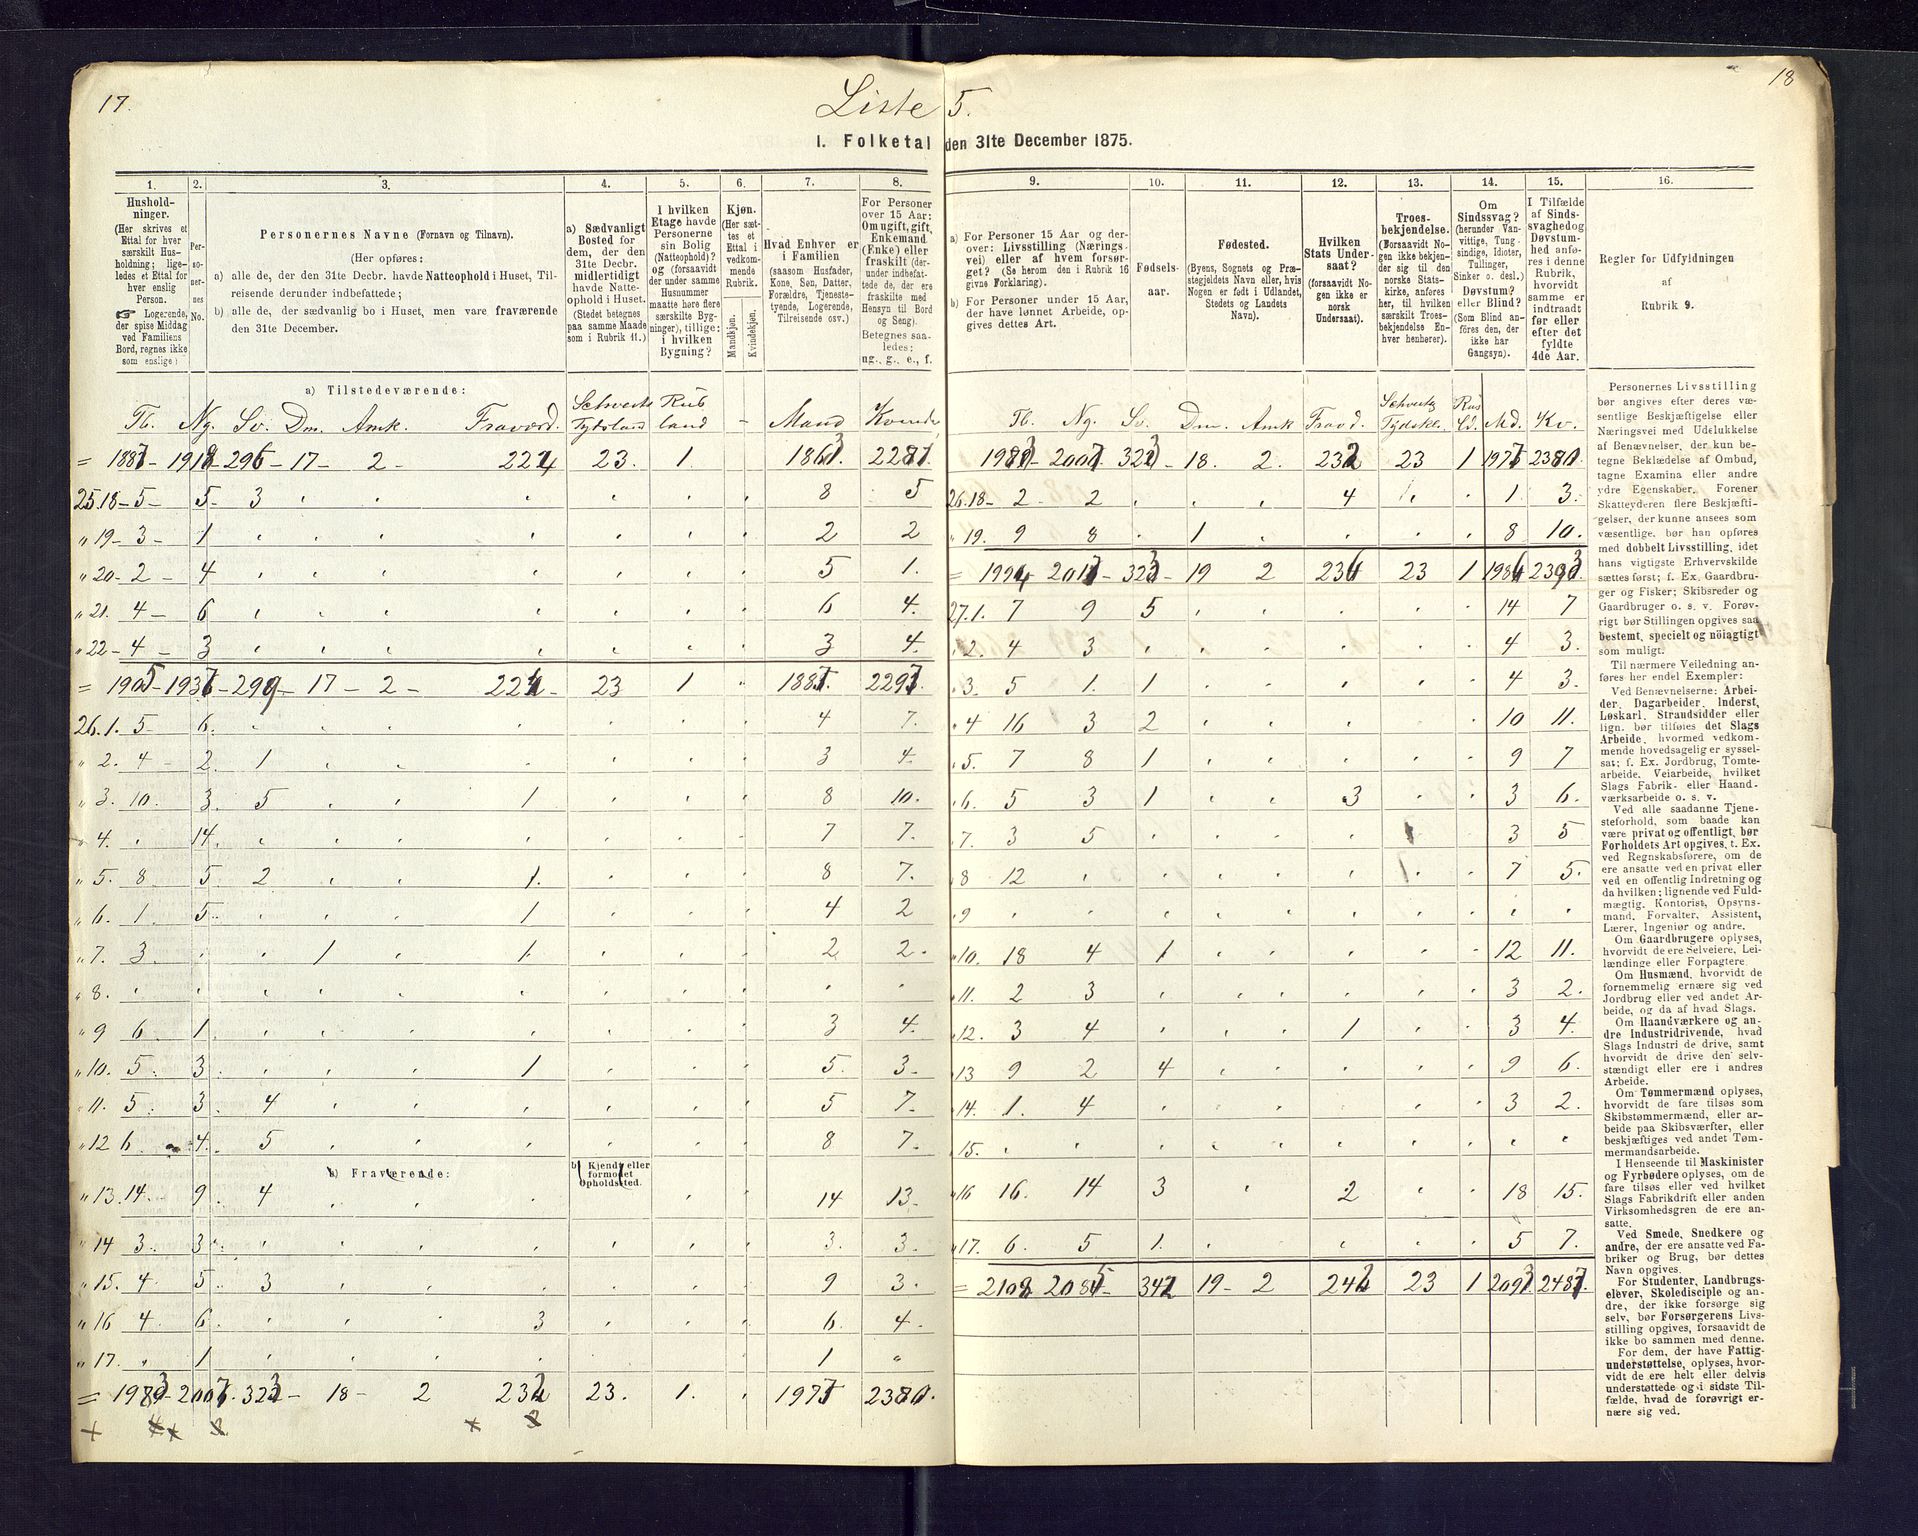 17.
18
Liste 5.
I. Folketal den 31te December 1875.
1.
2.
3.
4.
5.
6.
7.
8.
9.
10.
11.
12.
13.
14.
15.
16.
Hushold-
ninger.
(Her skrives et
Ettal for hver
særskilt Hus-
holdning; lige-
ledes et Ettal for
hver enslig
Person.
☞ Logerende,
der spise Middag
ved Familiens
Bord, regnes ikke
som enslige.)
Per-
so-
ner-
nes
No.
Personernes Navne (Fornavn og Tilnavn).
(Her opføres:
a) alle de, der den 31te Decbr. havde Natteophold i Huset, Til-
reisende derunder indbefattede;
b) alle de, der sædvanlig bo i Huset, men vare fraværende
den 31te December.
a) Sædvanligt
Bosted for
dem, der den
31te Decbr.
midlertidigt
havde Natte-
ophold i Huset.
(Stedet betegnes
paa samme Maade
som i Rubrik 11.)
I hvilken
Etage havde
Personerne
sin Bolig
(Natteophold)?
og (forsaavidt
der under samme
Husnummer
maatte høre flere
særskilte Byg-
ninger), tillige:
i hvilken
Bygning?
Kjøn.
(Her sæt-
tes et
Ettal i
vedkom-
mende
Rubrik.
Mandkjøn.
Kvindekjøn.
Hvad Enhver er
i Familien
(saasom Husfader,
Kone, Søn, Datter,
Forældre, Tjeneste-
tyende, Logerende,
Tilreisende osv.)
For Personer
over 15 Aar:
Om ugift, gift,
Enkemand
(Enke) eller
fraskilt (der-
under indbefat-
tede de, der ere
fraskilte med
Hensyn til Bord
og Seng).
Betegnes saa-
ledes:
ug., g., e., f.
a) For Personer 15 Aar og der-
over: Livsstilling (Nærings-
vei) eller af hvem forsør-
get? (Se herom den i Rubrik 16
givne Forklaring).
b) For Personer under 15 Aar,
der have lønnet Arbeide, op-
gives dettes Art.
Fødsels-
aar.
Fødested.
(Byens, Sognets og Præ-
stegjeldets Navn eller, hvis
Nogen er født i Udlandet,
Stedets og Landets
Navn).
Hvilken
Stats Under-
saat?
(forsaavidt No-
gen ikke er
norsk
Undersaat).
Troes-
bekjendelse.
(Forsaavidt No-
gen ikke bekjen-
der sig til den
norske Stats-
kirke, anføres
her, til hvilken
særskilt Troes-
bekjendelse En-
hver henhører).
Om
Sindssvag?
(herunder Van-
vittige, Tung-
sindige, Idioter,
Tullinger,
Sinker o. desl.)
Døvstum?
eller Blind?
(Som Blind an-
føres den, der
ikke har
Gangsyn).
I Tilfælde
af Sinds-
svaghed og
Døvstum-
hed anfø-
res i denne
Rubrik,
hvorvidt
samme er
indtraadt
før eller
efter det
fyldte
4de Aar.
Regler for Udfyldningen
af
Rubrik 9.
a) Tilstedeværende:
Tb. Ng. Sv. Dm. Amk. Fraværd. Schveitz Tydsland Rusland - Mand Kvinde
Tb. Ng. Sv. Dm. Amk Fravd. Schveitz Tydskl. Rusld. Md. Kv.
25.18 - 5 - 5 - 3 8 5
" 19 - 3 - 1 2 2
" 20 - 2 - 4 5 1.
" 21. 4 - 6 6 4.
" 22 - 4 - 3 3 4.
26.1. 5 6. 4 7.
" 2. 4 - 2. 1 3 4.
" 3. 10. 3. 5 1 8 10.
" 4. 14. 7 7.
" 5. 8 5. 2 1. 8 7.
" 6. 1. 5. 1 4 2
" 7. 3 1 1. 2 2.
" 8.
" 9 6 1. 3 4.
" 10. 5 3. 1 5. 3.
" 11. 5. 3. 4 5 7.
" 12 6 4. 5 8 7.
b) Fraværende:
b) Kjendt eller
formodet
Opholdssted.
" 13. 14. 9. 4 14 13.
" 14 3. 3 3. 3.
" 15. 4 5. 3 9 3.
" 16 4. 6. 3 6. 4.
" 17. " 1 1 "
26.18 - 2 - 2 4 1 3.
" 19. 9 8 1 8 10.
27.1. 7 9 5 14 7
" 2. 4 3 4 3.
" 3. 5 1. 1 4 3.
" 4 16 3 2 10 11.
" 5. 7 8 1 9 7
" 6. 5 3 1 3 3 6.
" 7. 3 5 3 5
" 8 12 7 5.
" 9
" 10. 18 4 1 12 11.
" 11. 2 3 3 2.
" 12. 3 4 1 3 4.
" 13 9 2 4 9 6.
" 14. 1. 4 3 2.
" 15.
" 16 16. 14 3 2 18 15.
" 17. 6. 5 1. 5 7.
Personernes Livsstilling
bør angives efter deres væ-
sentlige Beskjæftigelse eller
Næringsvei med Udelukkelse
af Benævnelser, der kun be-
tegne Beklædelse af Ombud,
tagne Examina eller andre
ydre Egenskaber. Forener
Skatteyderen flere Beskjæfti-
gelser, der kunne ansees som
væsentlige, bør han opføres
med dobbelt Livsstilling, idet
hans vigtigste Erhvervskilde
sættes først; f. Ex. Gaardbru-
ger og Fisker; Skibsreder og
Gaardbruger o. s. v. Forøv-
rigt bør Stillingen opgives saa
bestemt, specielt og nöiagtigt
som muligt.
Til nærmere Veiledning an-
føres her endel Exempler:
Ved Benævnelserne: Arbei-
der, Dagarbeider, Inderst,
Løskarl, Strandsidder eller
lign. bør tilføies det Slags
Arbeide, hvormed vedkom-
mende hovedsagelig er syssel-
sat; f. Ex. Jordbrug, Tomte-
arbeide, Veiarbeide, hvilket
Slags Fabrik- eller Haand-
værksarbeide o. s. v.
Ved alle saadanne Tjene-
steforhold, som baade kan
være privat og offentligt, bør
Forholdets Art opgives, t. Ex.
ved Regnskabsførere, om de
ere ansatte ved en privat eller
ved en offentlig Indretning og
da hvilken; lignende ved Fuld-
mægtig, Kontorist, Opsyns-
mand, Forvalter, Assistent,
Lærer, Ingeniør og andre.
Om Gaardbrugere oplyses,
hvorvidt de ere Selveiere, Lei-
lændinge eller Forpagtere.
Om Husmænd, hvorvidt de
fornemmelig ernære sig ved
Jordbrug eller ved andet Ar-
beide, og da af hvad Slags.
Om Haandværkere og an-
dre Industridrivende, hvad
Slags Industri de drive, samt
hvorvidt de drive den selv-
stændigt eller ere i andres
Arbeide.
Om Tømmermænd oplyses,
hvorvidt de fare tilsøs som
Skibstømmermænd, eller ar-
beide paa Skibsværfter, eller
beskjæftiges ved andet Tøm-
mermandsarbeide.
I Henseende til Maskinister
og Fyrbødere oplyses, om de
fare tilsøs eller ved hvilket
Slags Fabrikdrift eller anden
Virksomhedsgren de ere an-
satte.
Ved Smede, Snedkere og
andre, der ere ansatte ved Fa-
briker og Brug, bør dettes
Navn opgives.
For Studenter, Landbrugs-
elever, Skoledisciple og an-
dre, der ikke forsørge sig
selv, bør Forsørgerens Livs-
stilling opgives, forsaavidt de
ikke bo sammen med denne.
For dem, der have Fattig-
understøttelse, oplyses, hvor-
vidt de ere helt eller delvis
understøttede og i sidste Til-
fælde, hvad de forøvrigt er-
nære sig ved.